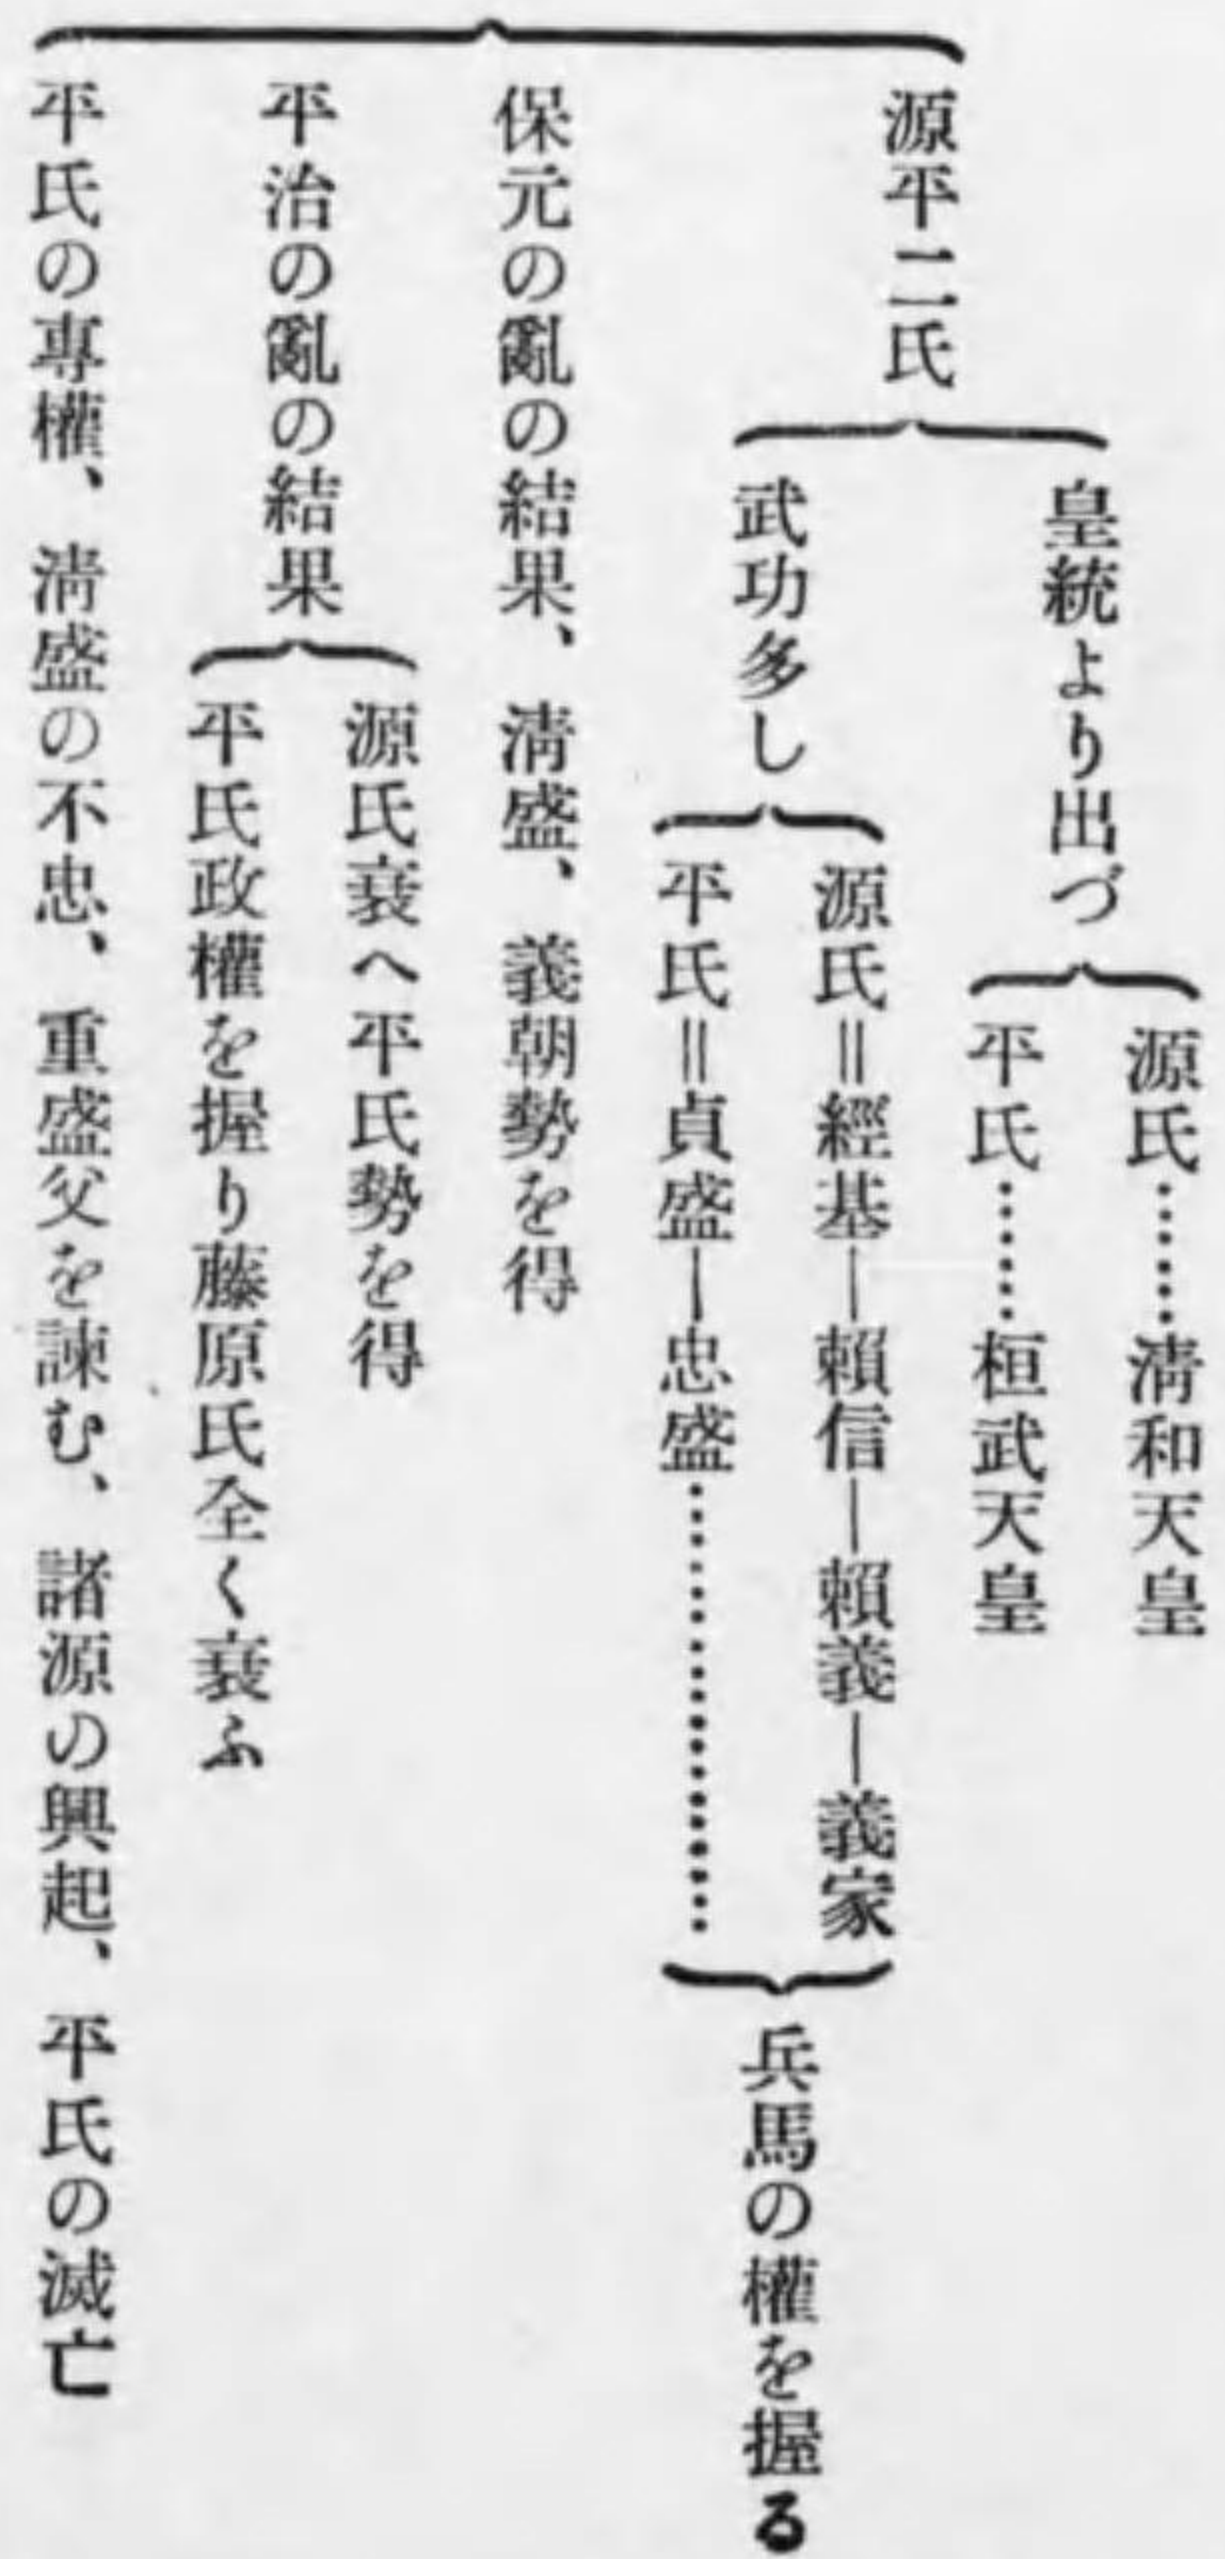 源平二氏
皇統より出づ
源氏……淸和天皇
平氏……桓武天皇
武功多し
源氏＝經基―賴信―賴義―義家
平氏＝貞盛―忠盛………………
兵馬の權を握る
保元の亂の結果、淸盛、義朝勢を得
平治の亂の結果
源氏衰へ平氏勢を得
平氏政權を握り藤原氏全く衰ふ
平氏の專權、淸盛の不忠、重盛父を諫む、諸源の興起、平氏の滅亡